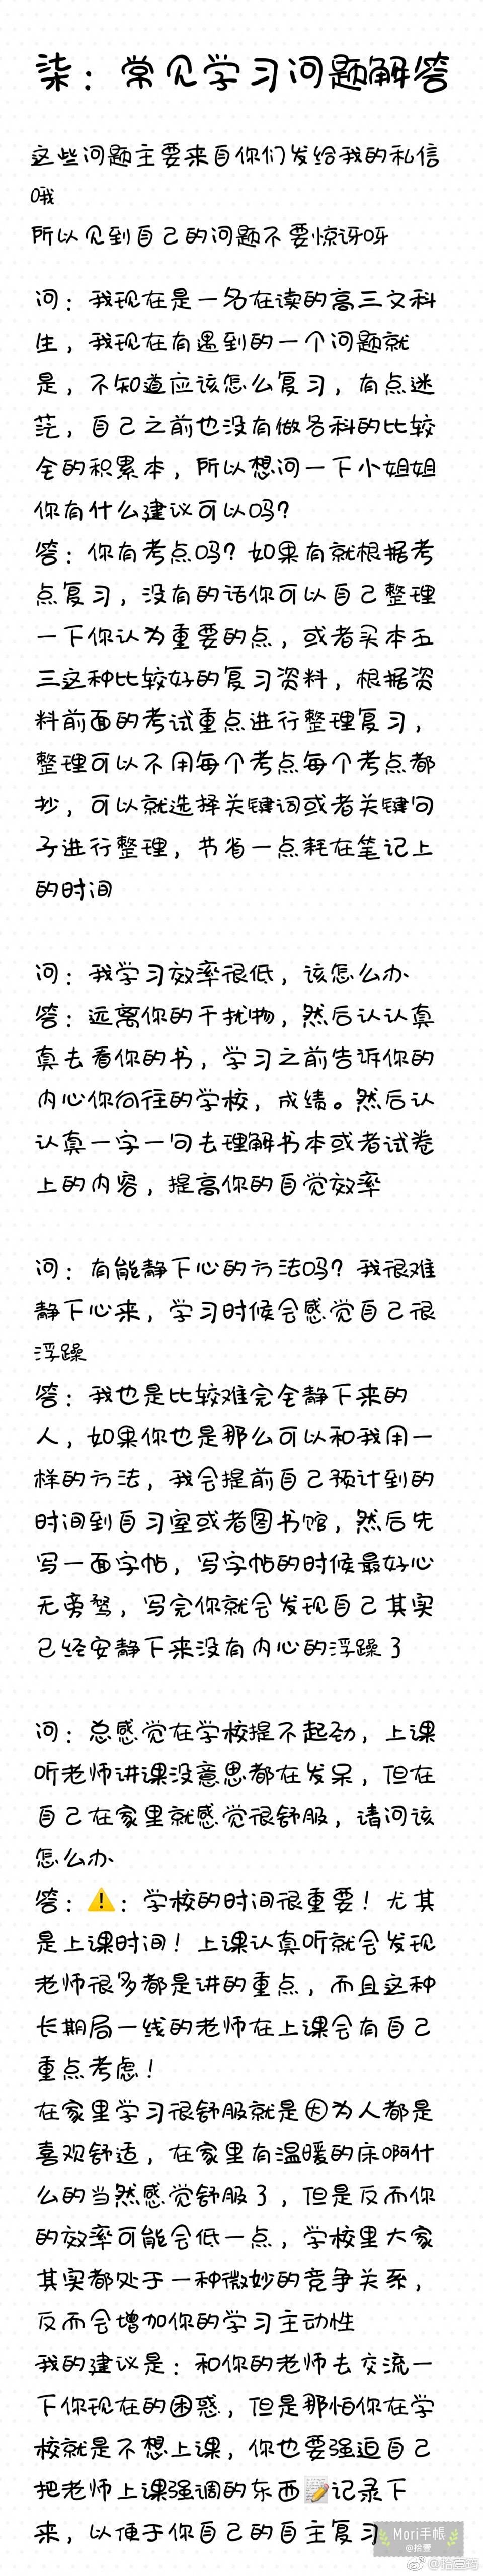 柒：常见学习问题解答
这些问题主要来自你们发给我的私信
哦
所以见到自己的问题不要惊讶呀
问：我现在是一名在读的高三文科
生，我现在有遇到的一个问题就
是，不知道应该怎么复习，有点迷
茫，自己之前也没有做各科的比较
全的积累本，所以想问一下小姐姐
你有什么建议可以吗？
答：你有考点吗？如果有就根据考
点复习，没有的话你可以自己整理
一下你认为重要的点，或者买本五
三这种比较好的复习资料，根据资
料前面的考试重点进行整理复习，
整理可以不用每个考点每个考点都
抄，可以就选择关键词或者关键句
子进行整理，节省一点耗在笔记上
的时间
问：我学习效率很低，该怎么办
答：远离你的干扰物，然后认认真
真去看你的书，学习之前告诉你的
内心你向往的学校，成绩。然后认
认真一字一句去理解书本或者试卷
上的内容，提高你的自觉效率
问：有能静下心的方法吗？我很难
静下心来，学习时候会感觉自己很
浮躁
答：我也是比较难完全静下来的
人，如果你也是那么可以和我用一
样的方法，我会提前自己预计到的
时间到自习室或者图书馆，然后先
写一面字帖，写字帖的时候最好心
无旁骛，写完你就会发现自己其实
已经安静下来没有内心的浮躁了
问：总感觉在学校提不起劲，上课
听老师讲课没意思都在发呆，但在
自己在家里就感觉很舒服，请问该
怎么办
答：⚠️：学校的时间很重要！尤其
是上课时间！上课认真听就会发现
老师很多都是讲的重点，而且这种
长期居一线的老师在上课会有自己
重点考虑！
在家里学习很舒服就是因为人都是
喜欢舒适，在家里有温暖的床啊什
么的当然感觉舒服了，但是反而你
的效率可能会低一点，学校里大家
其实都处于一种微妙的竞争关系，
反而会增加你的学习主动性
我的建议是：和你的老师去交流一
下你现在的困惑，但是哪怕你在学
校就是不想上课，你也要强迫自己
把老师上课强调的东西📝记录下
来，以便于你自己的自主复习
Mori手帳
@拾壹